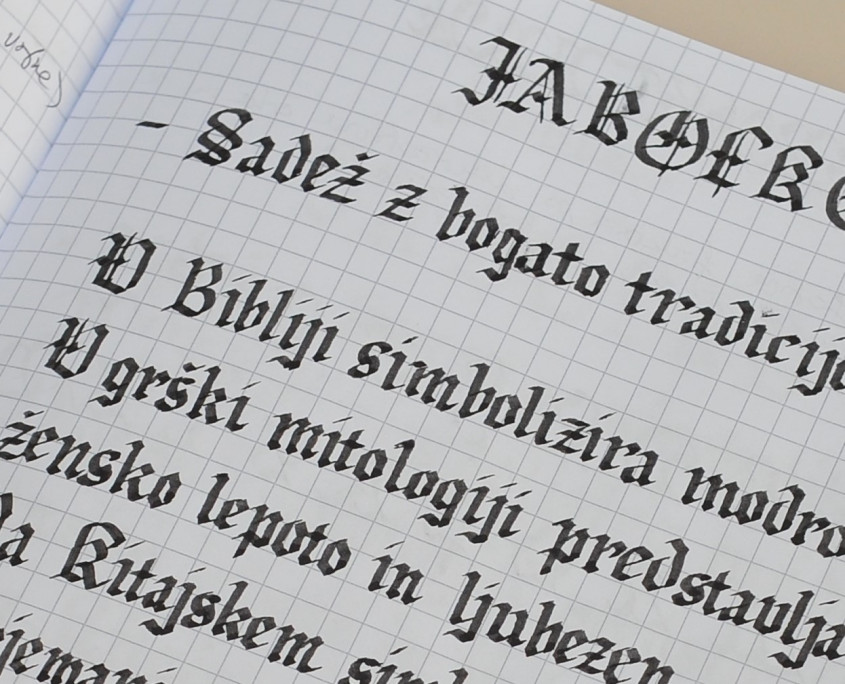 JABOLKO
- Sadež z bogato tradicijo
V Bibliji simbolizira modro
V grški mitologiji predstavlja
žensko lepoto in ljubezen
Kitajskem